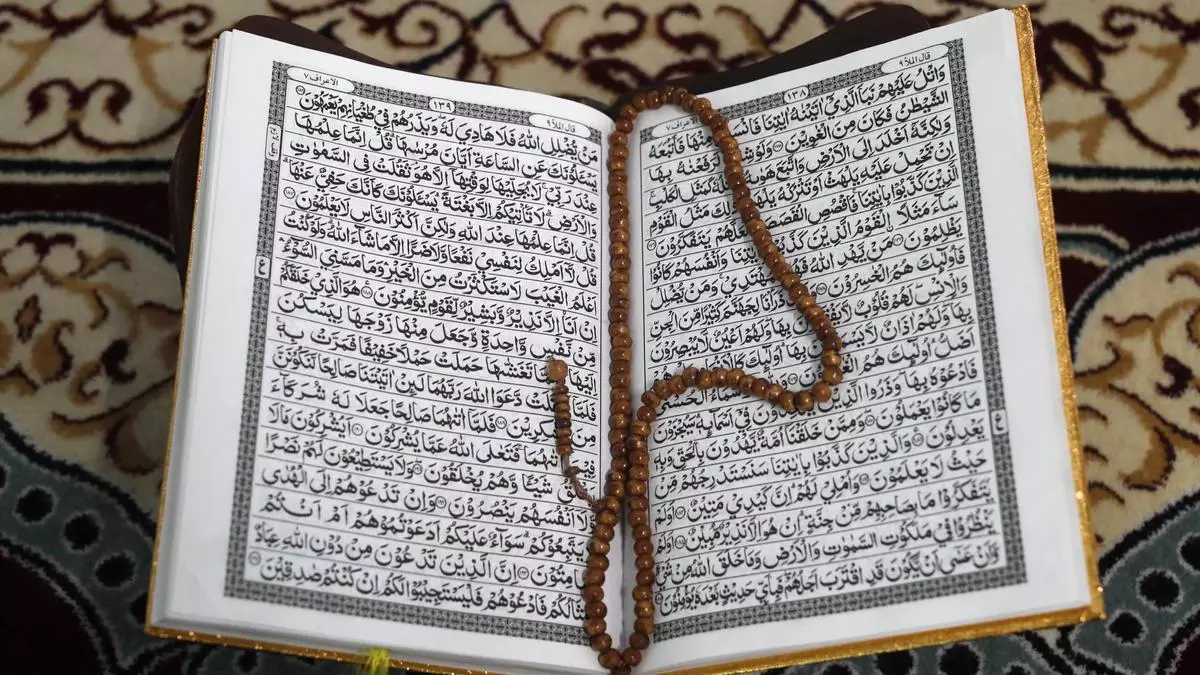 قال الملأ ٩
١٣٨
وَاتْلُ عَلَيْهِمْ نَبَاَ الَّذِيْٓ اٰتَيْنٰهُ اٰيٰتِنَا مِنْهَا فَاَتْبَعَهُ
الشَّيْطٰنُ فَكَانَ مِنَ الْغٰوِيْنَ ١٧٥ وَلَوْ بِهَا
وَلٰكِنَّهٗٓ اَخْلَدَ اِلَى الْاَرْضِ وَاتَّبَعَ هَوٰىهُ كَمَثَلِ الْكَلْبِ
اِنْ تَحْمِلْ عَلَيْهِ يَلْهَثْ اَوْ تَتْرُكْهُ يَلْهَثْ مَثَلُ الْقَوْمِ
الَّذِيْنَ كَذَّبُوْا بِاٰيٰتِنَا فَاقْصُصِ الْقَصَصَ لَعَلَّهُمْ يَتَفَكَّرُوْنَ ١٧٦
سَآءَ مَثَلًا الْقَوْمُ الَّذِيْنَ كَذَّبُوْا بِاٰيٰتِنَا وَاَنْفُسَهُمْ كَانُوْا
يَظْلِمُوْنَ ١٧٧ مَنْ يَّهْدِ اللّٰهُ وَمَنْ يُّضْلِلْ
فَاُولٰٓئِكَ هُمُ الْخٰسِرُوْنَ ذَرَاْنَا لِجَهَنَّمَ كَثِيْرًا مِّنَ الْجِنِّ
وَالْاِنْسِ لَهُمْ قُلُوْبٌ بِهَا وَلَهُمْ اَعْيُنٌ لَّا يُبْصِرُوْنَ
بِهَا وَلَهُمْ اٰذَانٌ لَّا بِهَا اُولٰٓئِكَ كَالْاَنْعَامِ
اَضَلُّ اُولٰٓئِكَ هُمُ الْحُسْنٰى
فَادْعُوْهُ بِهَا وَذَرُوا الَّذِيْنَ يُلْحِدُوْنَ فِيْٓ اَسْمَآئِهٖ سَيُجْزَوْنَ
مَا كَانُوْا يَعْمَلُوْنَ ١٨٠ وَمِمَّنْ خَلَقْنَآ اُمَّةٌ يَّهْدُوْنَ بِالْحَقِّ وَبِهٖ
يَعْدِلُوْنَ ١٨١ وَالَّذِيْنَ كَذَّبُوْا بِاٰيٰتِنَا سَنَسْتَدْرِجُهُمْ مِّنْ
حَيْثُ لَا يَعْلَمُوْنَ ١٨٢ وَاُمْلِيْ لَهُمْ اِنَّ كَيْدِيْ مَتِيْنٌ ١٨٣ اَوَلَمْ
يَتَفَكَّرُوْا مَا بِصَاحِبِهِمْ مِّنْ جِنَّةٍ اِنْ هُوَ اِلَّا نَذِيْرٌ مُّبِيْنٌ ١٨٤ اَوَلَمْ
يَنْظُرُوْا فِيْ مَلَكُوْتِ السَّمٰوٰتِ وَالْاَرْضِ وَمَا خَلَقَ اللّٰهُ مِنْ شَيْءٍ
وَّاَنْ عَسٰٓى اَنْ يَّكُوْنَ قَدِ اقْتَرَبَ اَجَلُهُمْ فَبِاَيِّ حَدِيْثٍ بَعْدَهٗ يُؤْمِنُوْنَ ١٨٥
ع
الاعراف ٧
١٣٩
قال الملأ ٩
مَنْ يُّضْلِلِ اللّٰهُ فَلَا هَادِيَ لَهٗ وَيَذَرُهُمْ فِيْ طُغْيَانِهِمْ يَعْمَهُوْنَ ١٨٦
يَسْـَٔلُوْنَكَ عَنِ السَّاعَةِ اَيَّانَ مُرْسٰىهَا قُلْ اِنَّمَا عِلْمُهَا
عِنْدَ رَبِّيْ لَا يُجَلِّيْهَا لِوَقْتِهَآ اِلَّا هُوَ ثَقُلَتْ فِي السَّمٰوٰتِ
وَالْاَرْضِ لَا تَاْتِيْكُمْ اِلَّا بَغْتَةً يَسْـَٔلُوْنَكَ كَاَنَّكَ حَفِيٌّ عَنْهَا
قُلْ اِنَّمَا عِلْمُهَا عِنْدَ اللّٰهِ وَلٰكِنَّ اَكْثَرَ النَّاسِ لَا يَعْلَمُوْنَ ١٨٧
قُلْ لَّآ اَمْلِكُ لِنَفْسِيْ نَفْعًا وَّلَا ضَرًّا اِلَّا مَا شَآءَ اللّٰهُ وَلَوْ كُنْتُ
اَعْلَمُ الْغَيْبَ لَاسْتَكْثَرْتُ مِنَ الْخَيْرِ وَمَا مَسَّنِيَ السُّوْٓءُ
اِنْ اَنَا اِلَّا نَذِيْرٌ وَّبَشِيْرٌ لِّقَوْمٍ يُّؤْمِنُوْنَ ١٨٨ هُوَ الَّذِيْ خَلَقَكُمْ
مِّنْ نَّفْسٍ وَّاحِدَةٍ وَّجَعَلَ مِنْهَا زَوْجَهَا لِيَسْكُنَ
اِلَيْهَا تَغَشّٰىهَا حَمَلَتْ حَمْلًا خَفِيْفًا فَمَرَّتْ بِهٖ
فَلَمَّآ دَّعَوَا اللّٰهَ رَبَّهُمَا لَئِنْ اٰتَيْتَنَا صَالِحًا لَّنَكُوْنَنَّ
مِنَ الشّٰكِرِيْنَ ١٨٩ فَلَمَّآ اٰتٰىهُمَا صَالِحًا جَعَلَا لَهٗ شُرَكَآءَ
فِيْمَآ اٰتٰىهُمَا فَتَعٰلَى اللّٰهُ عَمَّا يُشْرِكُوْنَ ١٩٠ اَيُشْرِكُوْنَ مَا لَا
يَخْلُقُ شَيْـًٔا وَّهُمْ يُخْلَقُوْنَ ١٩١ وَلَا يَسْتَطِيْعُوْنَ لَهُمْ نَصْرًا
وَّلَآ اَنْفُسَهُمْ يَنْصُرُوْنَ ١٩٢ وَاِنْ تَدْعُوْهُمْ اِلَى الْهُدٰى
لَا يَتَّبِعُوْكُمْ سَوَآءٌ عَلَيْكُمْ اَدَعَوْتُمُوْهُمْ اَمْ اَنْتُمْ
صَامِتُوْنَ ١٩٣ اِنَّ الَّذِيْنَ تَدْعُوْنَ مِنْ دُوْنِ اللّٰهِ عِبَادٌ
اَمْثَالُكُمْ فَادْعُوْهُمْ فَلْيَسْتَجِيْبُوْا لَكُمْ اِنْ كُنْتُمْ صٰدِقِيْنَ ١٩٤
ع